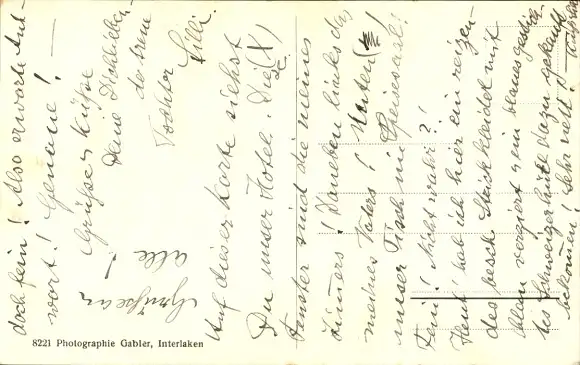 Auf dieser Karte siehst
Du unser Hotel. Die (X)
Fenster sind die meines
Zimmers! Daneben links das
meines Vaters! Unten
unser Tisch im Speisesaal!
Fein! Nicht wahr?!
Heut' hab' ich hier ein reizen-
des besch. Strickkleidel mit
blau verziert u ein blaues
Schweizerhütl dazu gekauft
bekommen! Sehr nett!
doch fein! Also erwarte Ant-
wort! Genaue! —
Grüße u Küsse
Deine Dich liebende
treue
Tochter
Lilli.
Grüße an
alle!
8221 Photographie Gabler, Interlaken